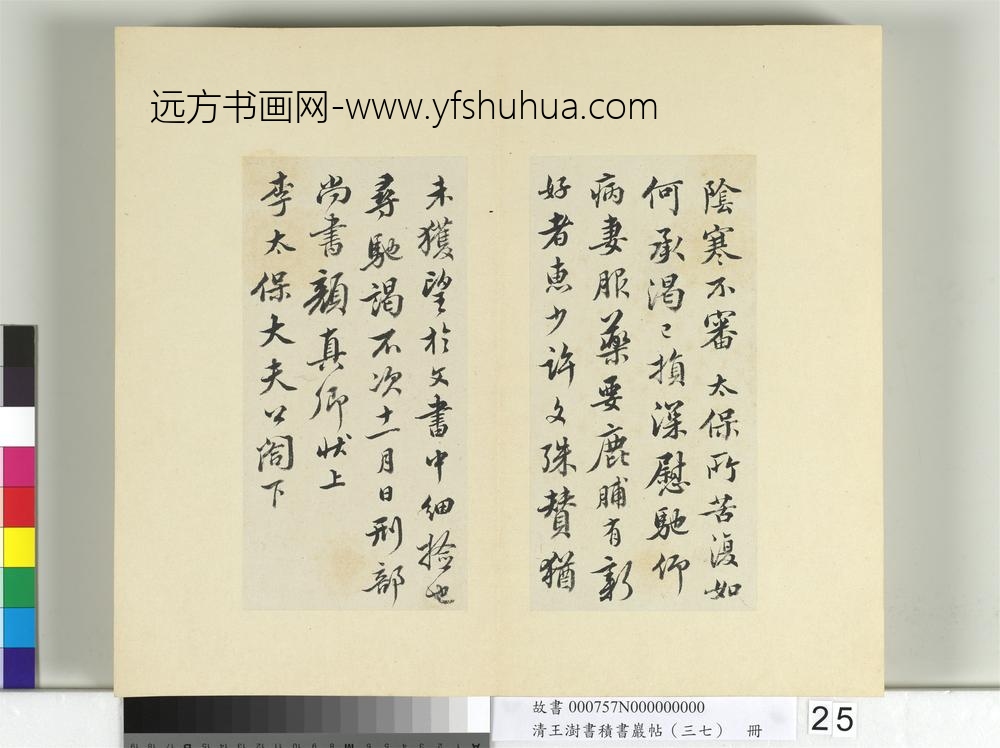 远方书画网-www.yfshuhua.com
陰寒不審太保所苦復如
何承渴已損深慰馳仰
病妻服藥要鹿脯有新
好者惠少許文殊贊猶
未獲望於文書中細撿也
尋馳謁不次十一月日刑部
尚書顏真卿狀上
李太保大夫公閤下
故書 000757N000000000
清王澍書積書巖帖（三七） 冊
25